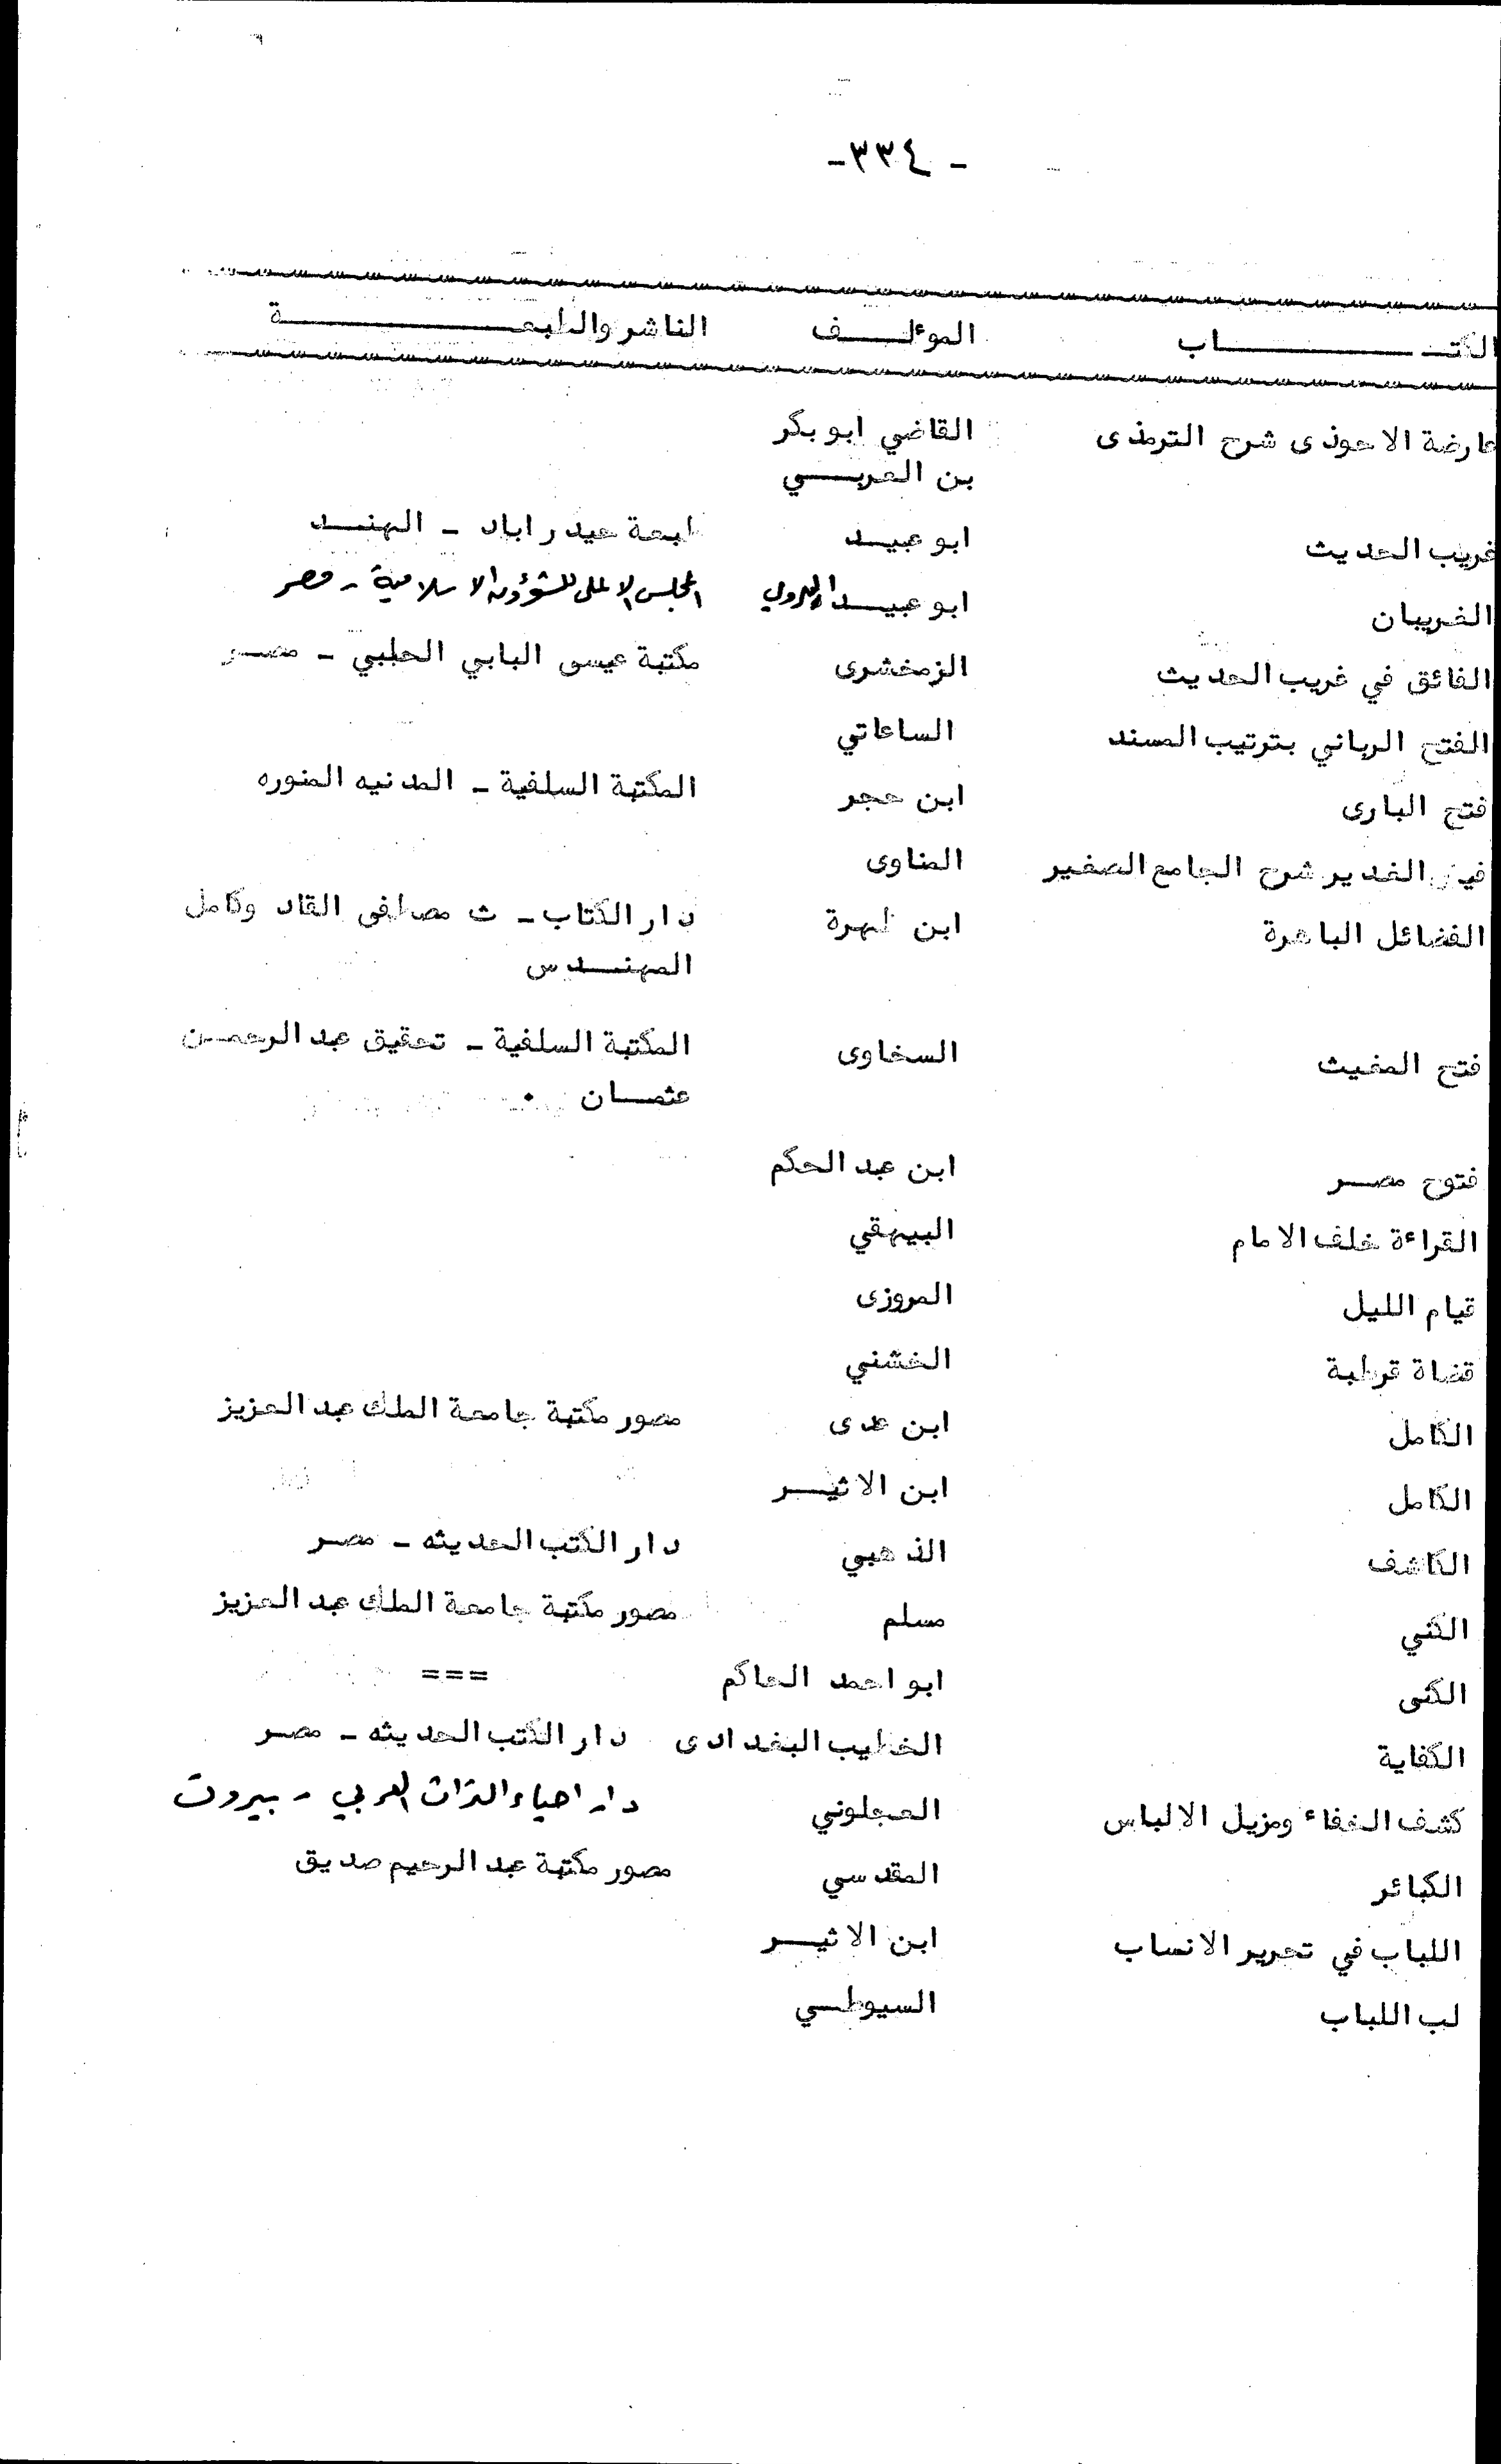 - ٣٣٤-
الكتـــاب الموءلــف الناشر والطبعـــة
عارضة الاحوذى شرح الترمذى القاضي ابو بكر
بن العربــي
غريب الحديث ابو عبيــد طبعة حيدر اباد - الهنــد
الغريبان ابو عبيــد الهروي المجلس الاعلى للشؤون الاسلامية - مصر
الفائق في غريب الحديث الزمخشرى مكتبة عيسى البابي الحلبي - مصــر
الفتح الرباني بترتيب المسند الساعاتي
فتح البارى ابن حجر المكتبة السلفية - المدنيه المنوره
فيض القدير شرح الجامع الصغير المناوى
الفضائل الباهرة ابن ظهرة دار الكتاب - ت مصطفى القاد وكامل
المهنــدس
فتح المغيث السخاوى المكتبة السلفية - تحقيق عبد الرحمــن
عثمــان .
فتوح مصــر ابن عبد الحكم
القراءة خلف الامام البيهقي
قيام الليل المروزى
قضاة قرطبة الخشني
الكامل ابن عدى مصور مكتبة جامعة الملك عبد العزيز
الكامل ابن الاثيــر
الكاشف الذهبي دار الكتب الحديثه - مصر
الكني مسلم مصور مكتبة جامعة الملك عبد العزيز
الكنى ابو احمد الحاكم ===
الكفاية الخطيب البغدادى دار الكتب الحديثه - مصر
كشف الخفاء ومزيل الالباس العجلوني دار احياء التراث العربي - بيروت
الكبائر المقدسي مصور مكتبة عبد الرحيم صديق
اللباب في تحرير الانساب ابن الاثيــر
لب اللباب السيوطــي